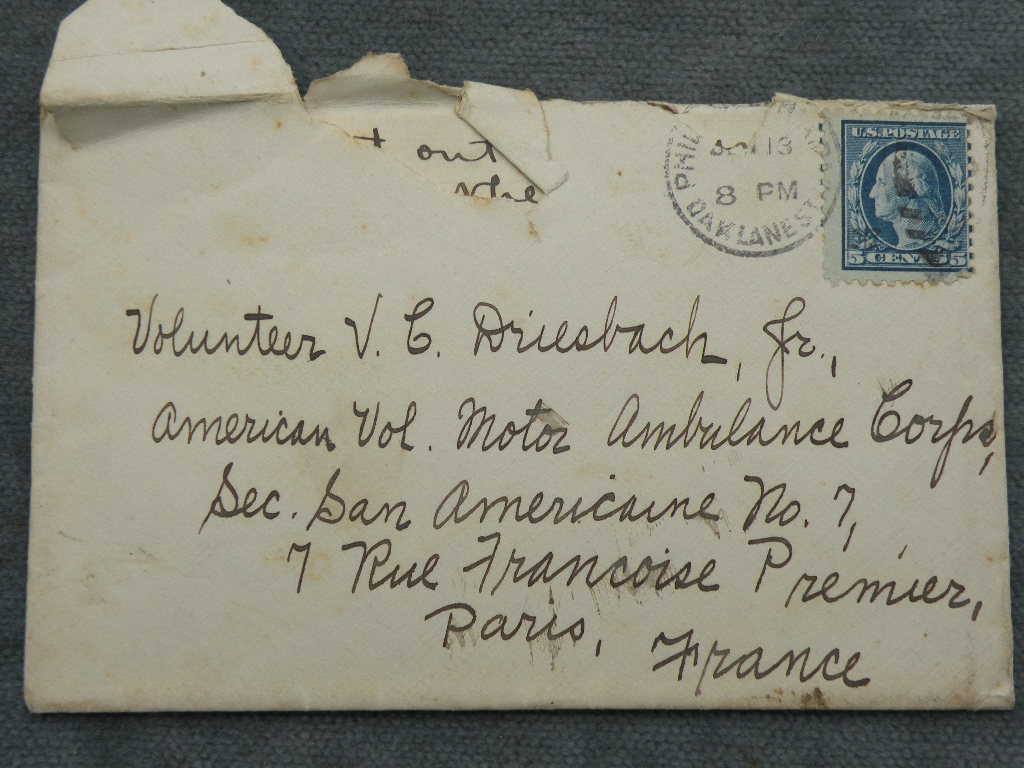 + out
U.S. POSTAGE
13
8 PM
OAK LANE ST
5 CENTS 5
Volunteer V. C. Driesbach, Jr.,
American Vol. Motor Ambulance Corps,
Sec. San Americaine No. 7,
7 Rue Francoise Premier,
Paris,
France